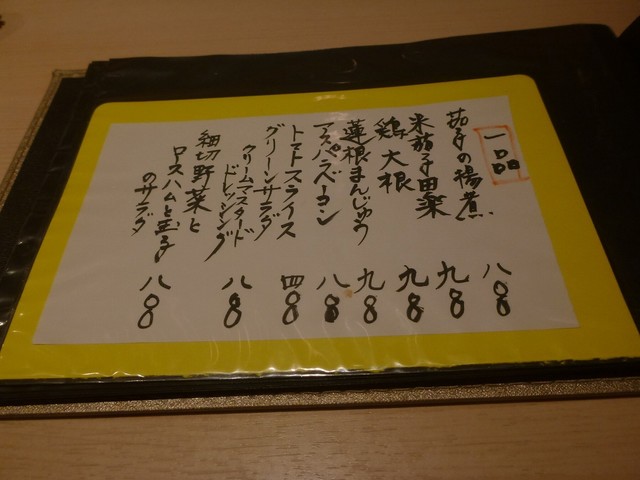 一品
茄子の揚煮 八〇〇
米茄子田楽 九〇〇
鶏大根 九〇〇
蓮根まんじゅう 九〇〇
アスパラベーコン 八〇〇
トマトスライス 四〇〇
グリーンサラダ
クリームマスタード
ドレッシング 八〇〇
細切野菜と
ロースハムと玉子
のサラダ 八〇〇